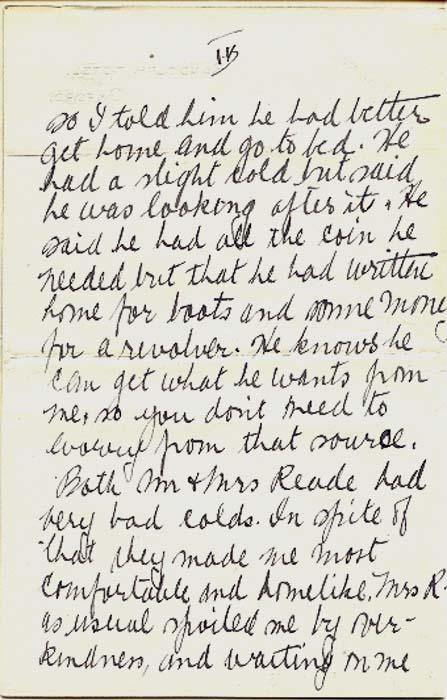 so I told him he had better
get home and go to bed. He
had a slight cold but said
he was looking after it. He
said he had all the coin he
needed but that he had written
home for boots and some money
for a revolver. He knows he
can get what he wants from
me, so you don't need to
worry from that source.
Both Mr & Mrs Reade had
very bad colds. In spite of
that they made me most
comfortable and homelike, Mrs R.
as usual spoiled me by over-
kindness, and waiting on me